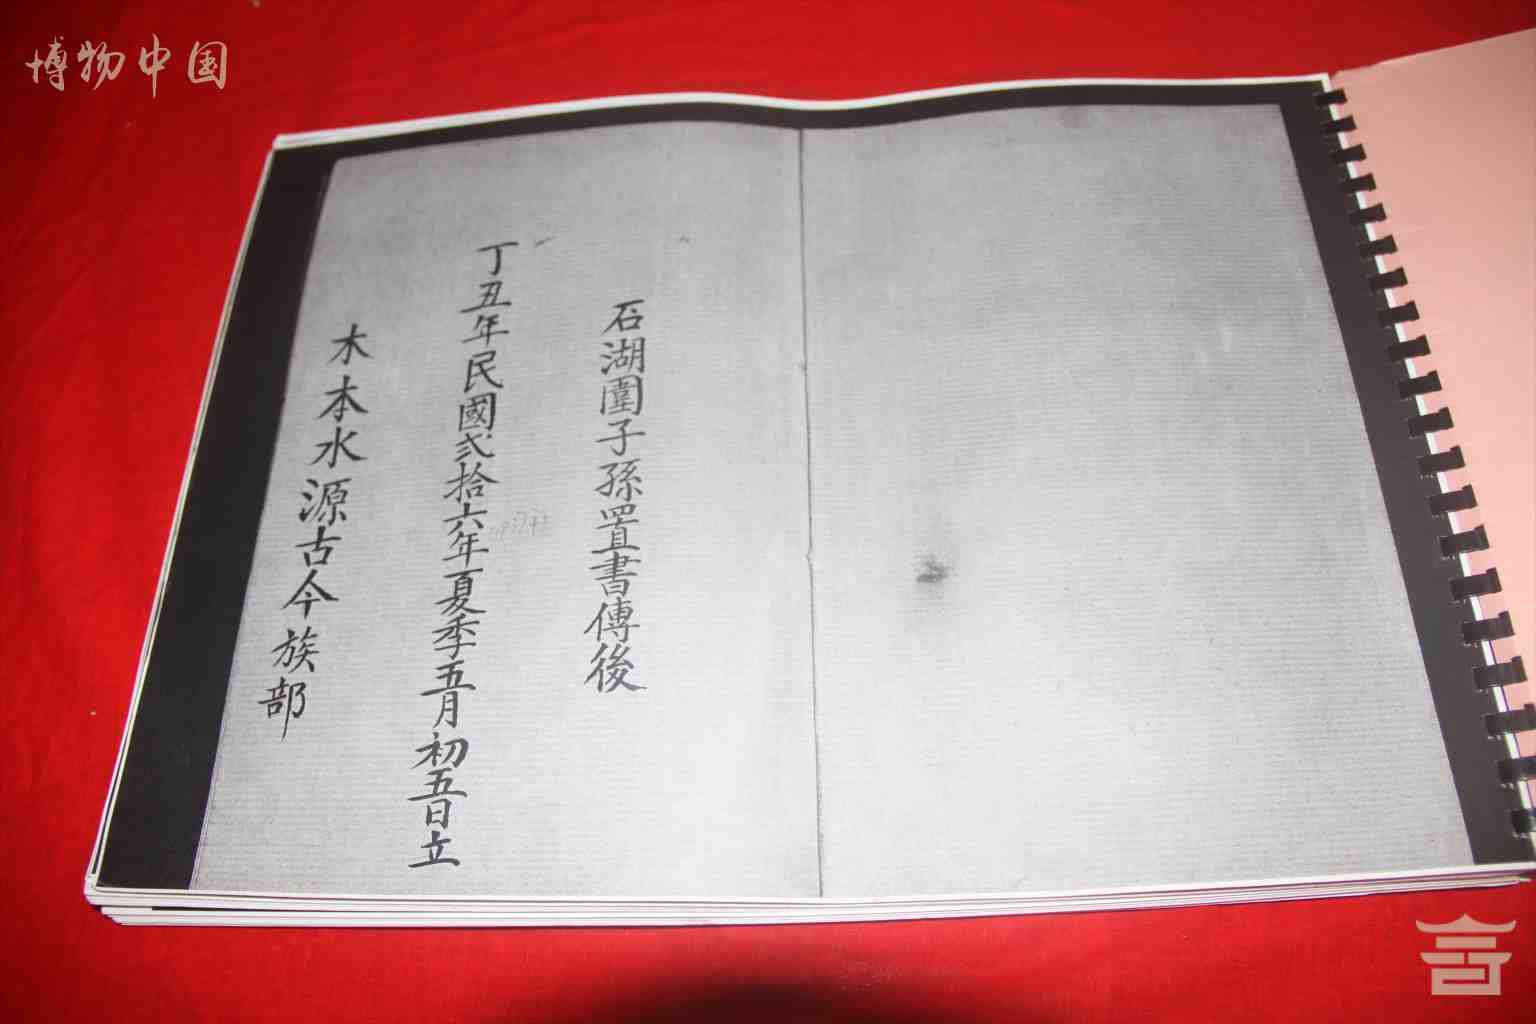 博物中国
石湖圍子孫置書傳後
丁丑年民國弍拾六年夏季五月初五日立
木本水源古今族部